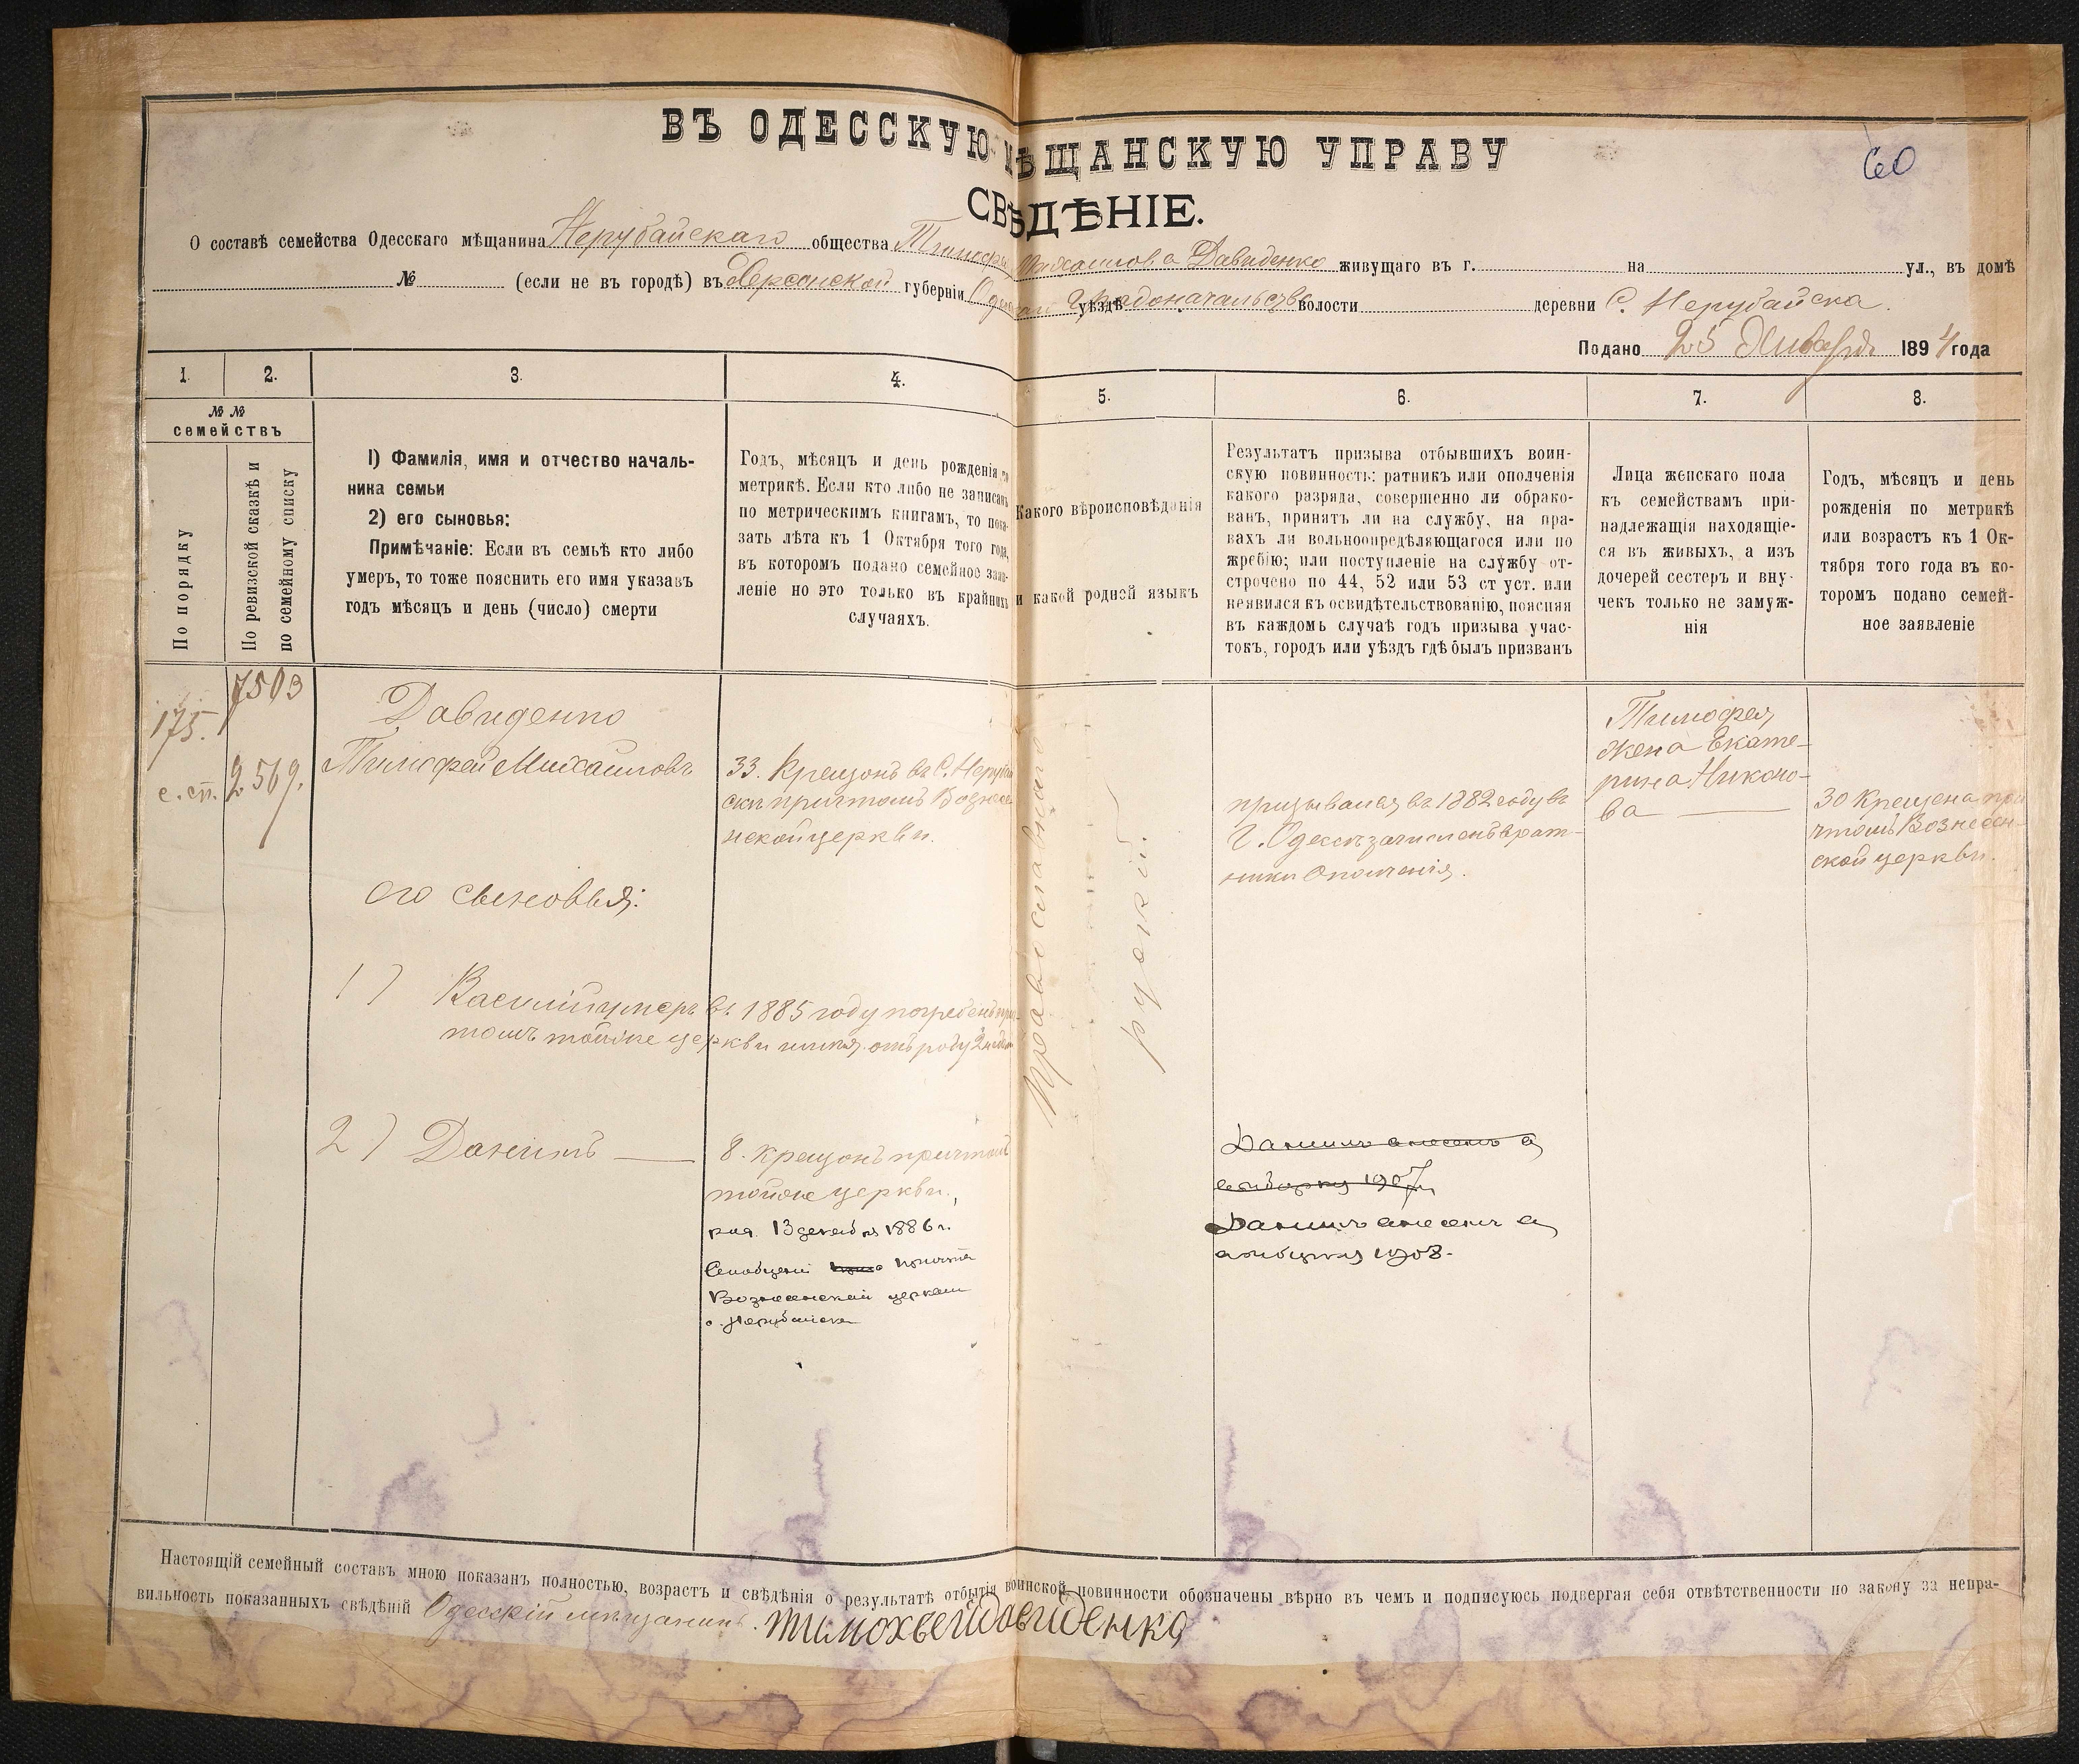 60
ВЪ ОДЕССКУЮ МѢЩАНСКУЮ УПРАВУ
СВѢДѢНІЕ.
О составѣ семейства Одесскаго мѣщанина Нерубайскаго общества Тимофея Михаилова Давиденко живущаго въ г. на ул., въ домѣ
№ (если не въ городѣ) въ Херсонской губерніи уѣздѣ Градоначальства волости деревни С. Нерубайска.
Подано 25 Января 1894 года
1. 2. 3. 4. 5. 6. 7. 8.
№ №
семействъ
По порядку
По ревизской сказкѣ и
по семейному списку
1) Фамилія, имя и отчество началь-
ника семьи
2) его сыновья:
Примѣчаніе: Если въ семьѣ кто либо
умеръ, то тоже пояснить его имя указавъ
годъ мѣсяцъ и день (число) смерти
Годъ, мѣсяцъ и день рожденія по
метрикѣ. Если кто либо не записанъ
по метрическимъ книгамъ, то пока-
зать лѣта къ 1 Октября того года,
въ которомъ подано семейное заяв-
леніе но это только въ крайнихъ
случаяхъ.
Какого вѣроисповѣданія
и какой родной языкъ
Результатъ призыва отбывшихъ воин-
скую повинность: ратникъ или ополченія
какого разряда, совершенно ли обрако-
ванъ, принятъ ли на службу, на пра-
вахъ ли вольноопредѣляющагося или по
жребію; или поступленіе на службу от-
строчено по 44, 52 или 53 ст уст. или
неявился къ освидѣтельствованію, поясняя
въ каждомъ случаѣ годъ призыва учас-
токъ, городъ или уѣздъ гдѣ былъ призванъ
Лица женскаго пола
къ семействамъ при-
надлежащія находящіе-
ся въ живыхъ, а изъ
дочерей сестеръ и вну-
чекъ только не замуж-
нія
Годъ, мѣсяцъ и день
рожденія по метрикѣ
или возрастъ къ 1 Ок-
тября того года въ ко-
торомъ подано семей-
ное заявленіе
7503
175.
с. сп. 2569.
Давиденко
Тимофей Михаиловъ
33. Крещонъ въ С. Нерубай
ски причтомъ Вознесе
нской церкви.
Православнаго
руский.
призывался въ 1882 году въ
Г. Одессѣ зачисленъ в рат-
ники Ополченія.
Тимофея
жена Екате-
рина Николо-
ва
30 Крещена при
чтомъ Вознесен-
ской церкви.
его сыновья:
1) Василій умеръ въ 1885 году погребенъ прич
томъ тойже церкви имѣя отъ роду 2 недѣли
2) Данiилъ
8. Крещонъ причтомъ
тойже церкви.
род. 13 декабря 1886 г.
Сообщеніе причта
Вознесенской церкви
с. Нерубайска
Даниилъ внесенъ в
1907
Даниилъ внесенъ в
1908.
Настоящій семейный составъ мною показанъ полностью, возрастъ и свѣдѣнія о результатѣ отбытія воинской повинности обозначены вѣрно въ чемъ и подписуюсь подвергая себя отвѣтственности по закону за непра-
вильность показанныхъ свѣдѣній Одесскій мѣщанинъ. тимохвей давиденко